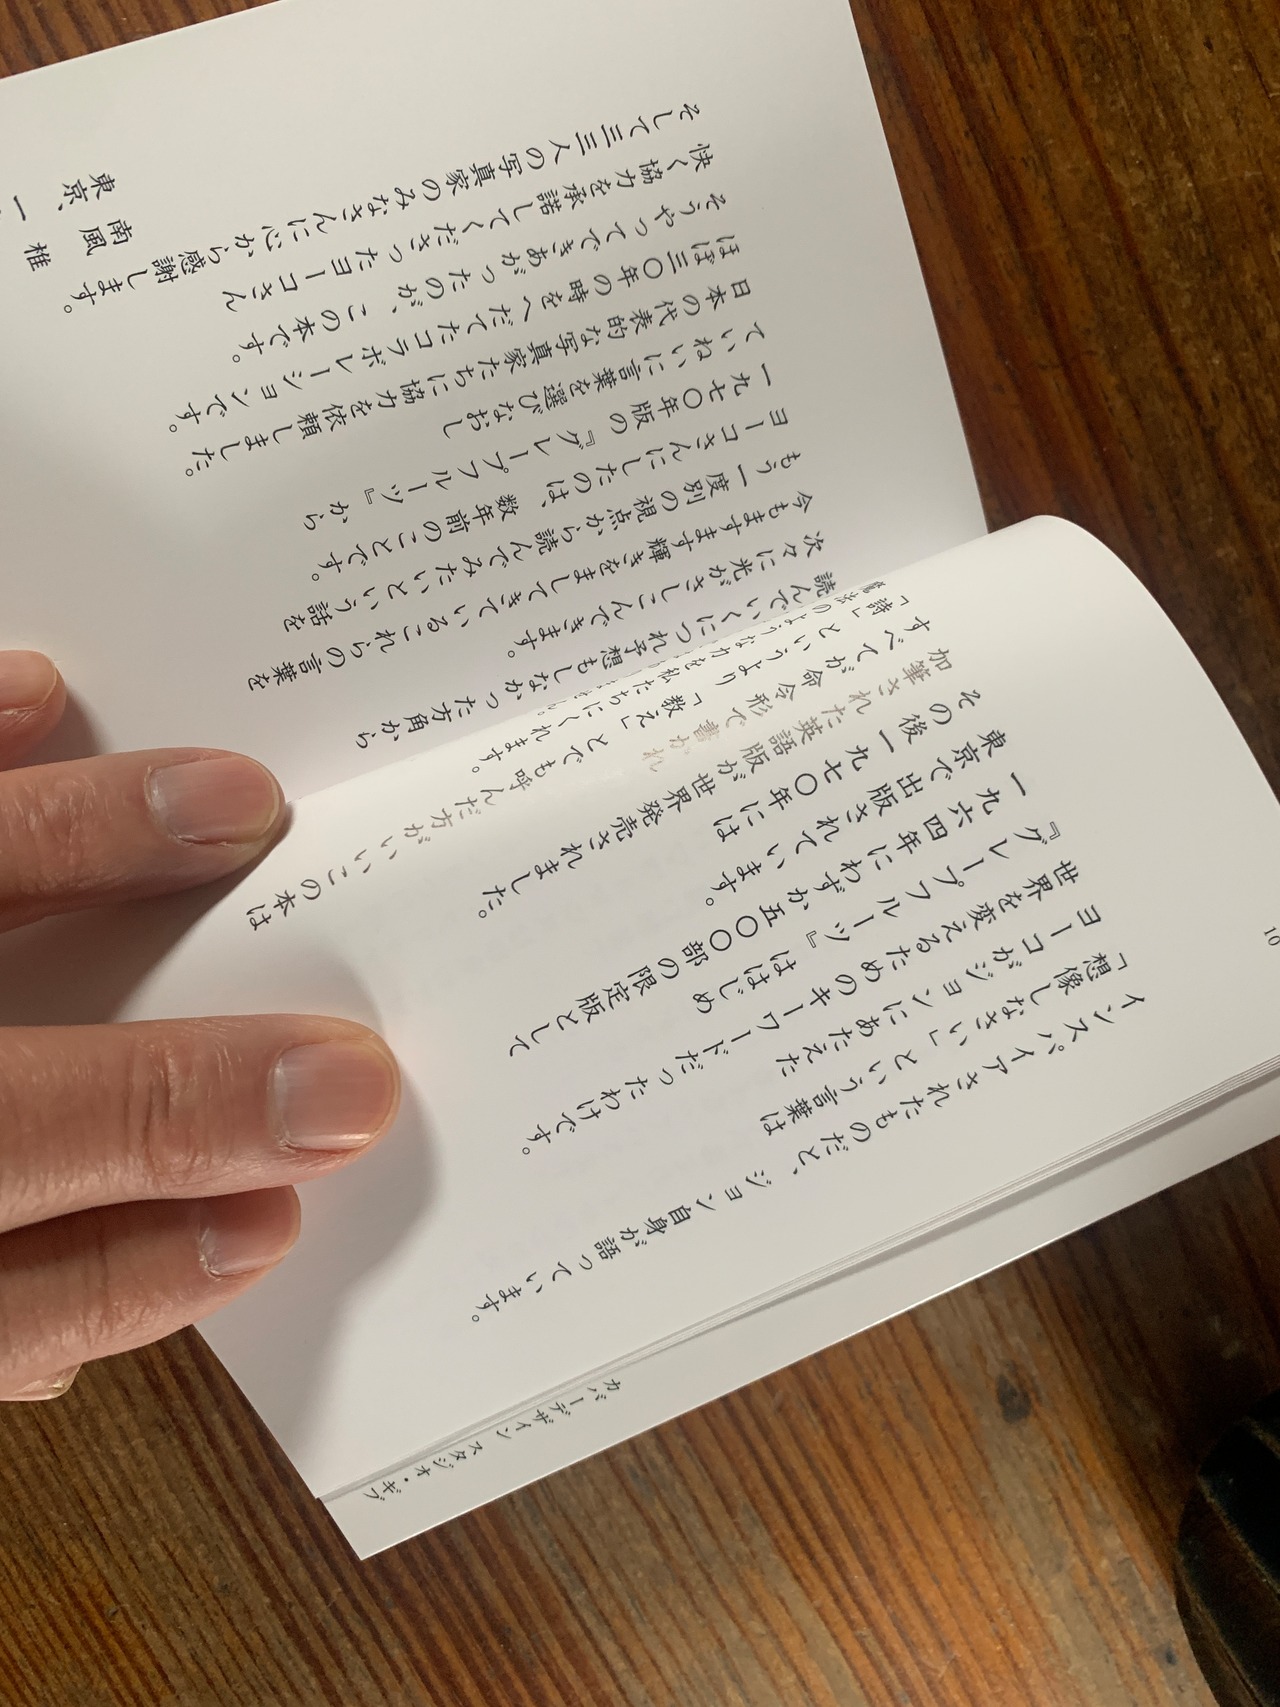 インスパイアされたものだと、ジョン自身が語っています。
「想像しなさい」という言葉は
ヨーコがジョンにあたえた
世界を変えるためのキーワードだったわけです。
『グレープフルーツ』ははじめ
一九六四年にわずか五〇〇部の限定版として
東京で出版されています。
その後一九七〇年には
加筆された英語版が世界発売されました。
すべてが命令形で書かれ
「詩」というより「教え」とでも呼んだ方がいいこの本は
魔法のような力を私たちにくれます。
読んでいくにつれ予想もしなかった方角から
次々に光がさしこんできます。
今もますます輝きをましてきているこれらの言葉を
もう一度別の視点から読んでみたいという話を
ヨーコさんにしたのは、数年前のことです。
一九七〇年版の『グレープフルーツ』から
ていねいに言葉を選びなおし
日本の代表的な写真家たちに協力を依頼しました。
ほぼ三〇年の時をへだてたコラボレーションです。
そうやってできあがったのが、この本です。
快く協力を承諾してくださったヨーコさん
そして三三人の写真家のみなさんに心から感謝します。
南風 椎
東京、一
10
カバーデザイン スタジオ・ギブ